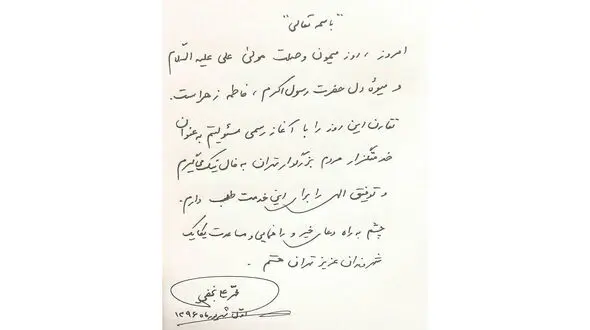 "باسمه تعالی"
امروز، روز میمون وصلت مولی علی علیه السّلام
و میوهٔ دل حضرت رسول اکرم، فاطمه زهراست.
تقارن این روز را با آغاز رسمی مسئولیتم به عنوان
خدمتگزار مردم بزرگوار تهران به فال نیک می‌گیرم
و توفیق الهی را برای این خدمت طلب دارم.
چشم به راه دعای خیر و راهنمایی و مساعدت یکایک
شهروندان عزیز تهران هستم.
محمد علی نجفی
اول شهریور ماه ۱۳۹۶